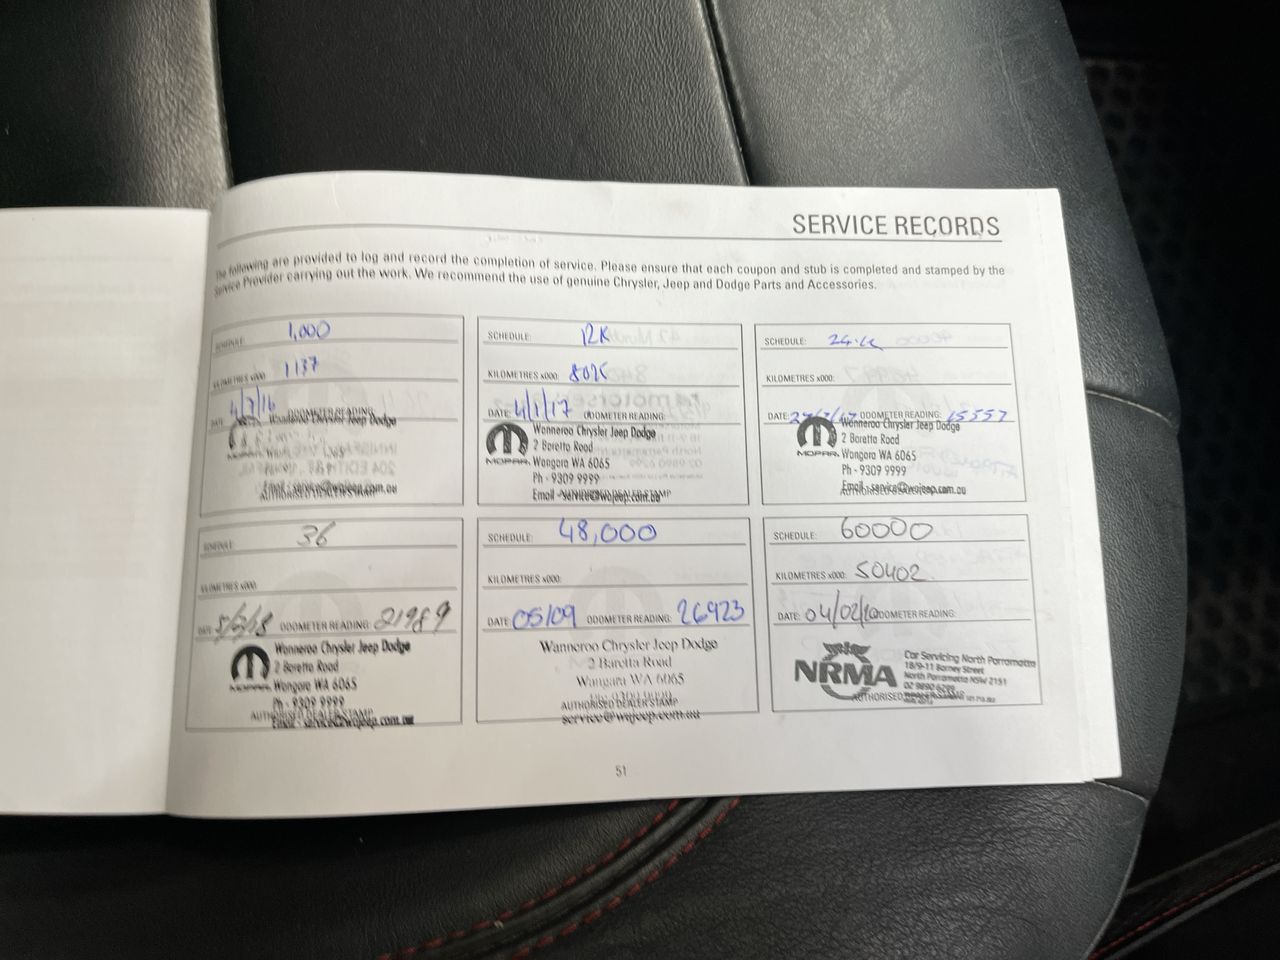 SERVICE RECORDS
The following are provided to log and record the completion of service. Please ensure that each coupon and stub is completed and stamped by the
Service Provider carrying out the work. We recommend the use of genuine Chrysler, Jeep and Dodge Parts and Accessories.
SCHEDULE: 1,000
KILOMETRES x000: 1137
DATE: 4/7/16 ODOMETER READING:
Wanneroo Chrysler Jeep Dodge
MOPAR
Email : service@wajeep.com.au
AUTHORISED DEALER STAMP
SCHEDULE: 12K
KILOMETRES x000:
DATE: 4/1/17 ODOMETER READING:
Wanneroo Chrysler Jeep Dodge
2 Baretta Road
MOPAR. Wangara WA 6065
Ph - 9309 9999
Email - service@wajeep.com.au
AUTHORISED DEALER STAMP
SCHEDULE: 24.K
KILOMETRES x000:
DATE: ODOMETER READING: 15557
Wanneroo Chrysler Jeep Dodge
2 Baretta Road
MOPAR. Wangara WA 6065
Ph - 9309 9999
Email : service@wajeep.com.au
AUTHORISED DEALER STAMP
SCHEDULE: 36
KILOMETRES x000:
DATE: ODOMETER READING: 21989
Wanneroo Chrysler Jeep Dodge
2 Baretta Road
MOPAR. Wangara WA 6065
Ph - 9309 9999
AUTHORISED DEALER STAMP
Email : service@wajeep.com.au
SCHEDULE: 48,000
KILOMETRES x000:
DATE: 05/09 ODOMETER READING: 26923
Wanneroo Chrysler Jeep Dodge
2 Baretta Road
Wangara WA 6065
AUTHORISED DEALER STAMP
service@wajeep.com.au
SCHEDULE: 60000
KILOMETRES x000: 50402
DATE: 04/02/20 ODOMETER READING:
NRMA
Car Servicing North Parramatta
18/9-11 Barney Street
North Parramatta NSW 2151
AUTHORISED DEALER STAMP
51